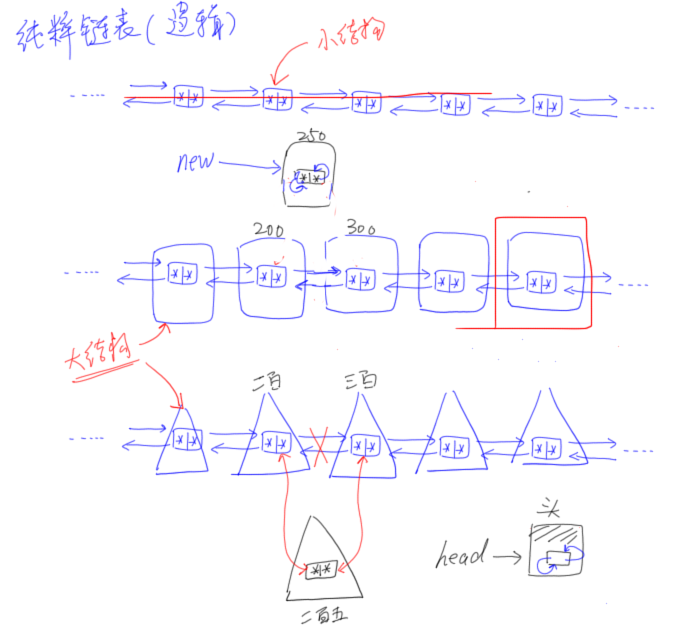 纯粹链表(逻辑)
小结构
250
new
200
300
大结构
二百
三百
头
head
二百五